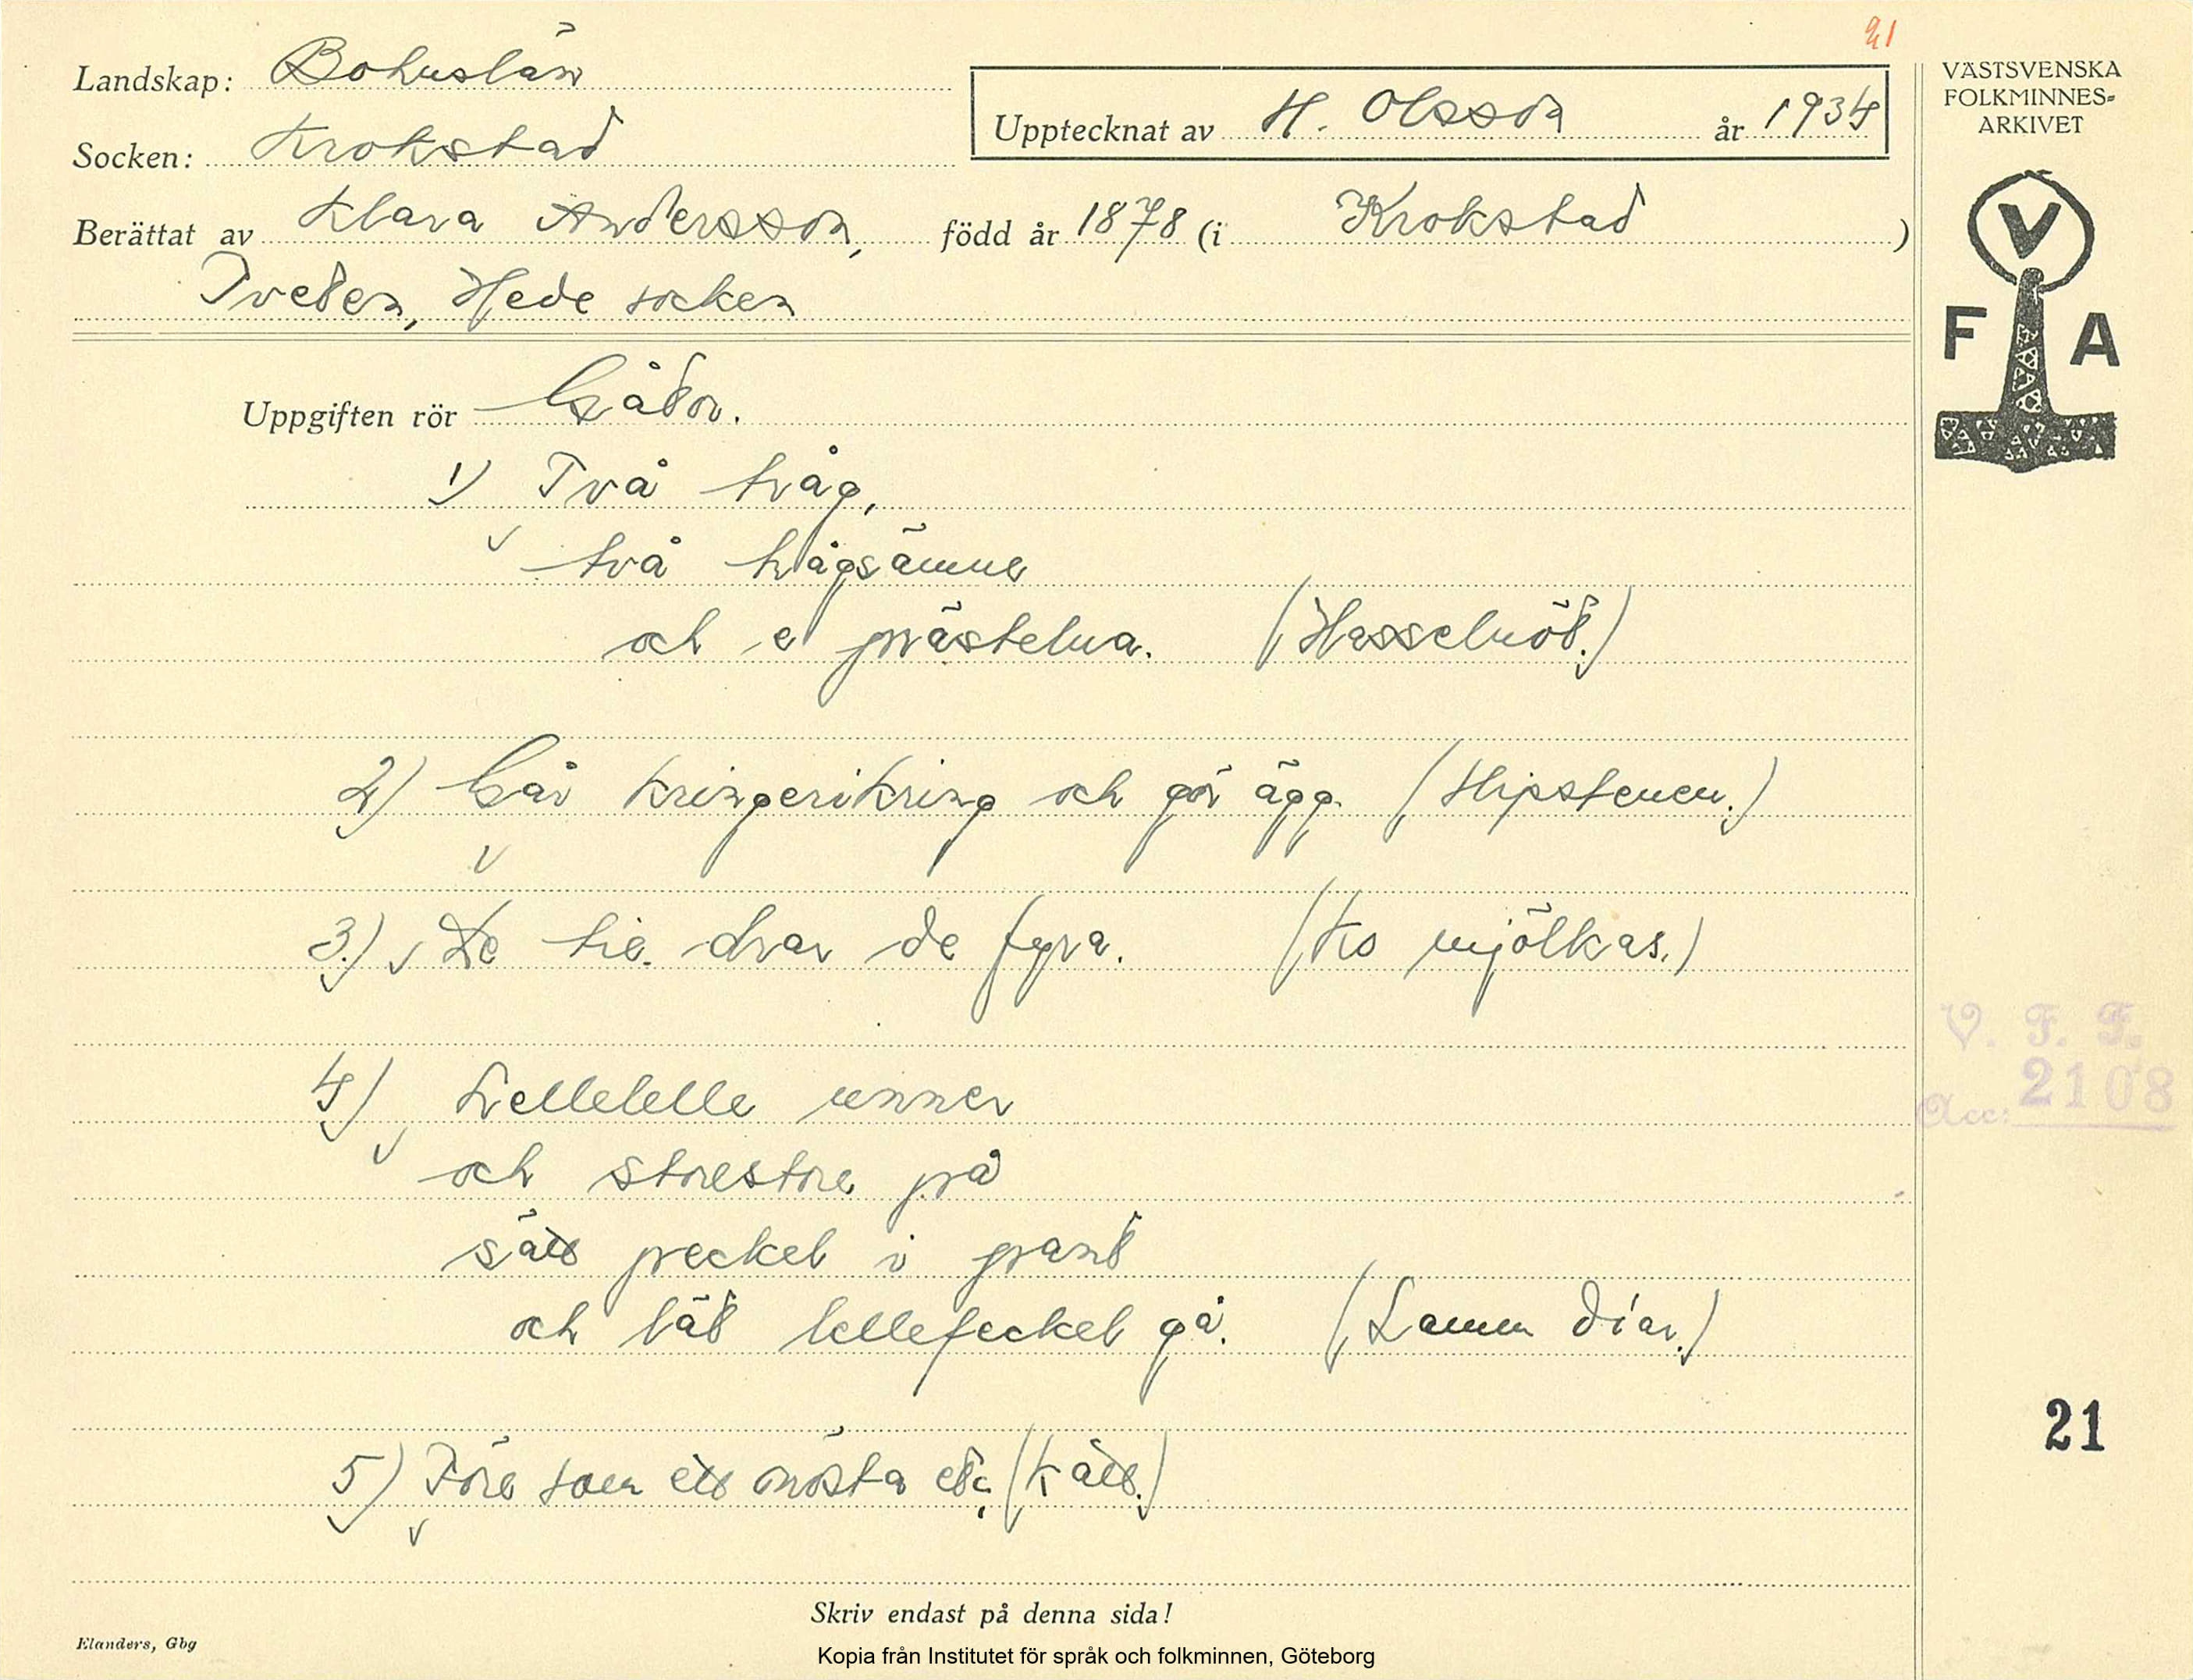 21
Landskap: Bohuslän
Upptecknat av H. Olsson år 1934
Socken: Krokstad
Berättat av Klara Andersson, född år 1878 (i Krokstad)
Tveten, Hede socken
VÄSTSVENSKA
FOLKMINNES-
ARKIVET
V
F A
Uppgiften rör Gåtor.
1) Två tråg,
två trågsämne
och e prästelua. (Hasselnöt.)
2) Går kringerikring och gör ägg. (Slipstenen.)
3.) De tie drar de fyra. (Ko mjölkas.)
4) Lellelelle unner
och storestore på
sätt preckel i prant
och lät lellefeckel gå. (Lamm diar.)
5) Före som ett nösta etc (Katt.)
V. F. F.
Acc: 2108
21
Skriv endast på denna sida!
Elanders, Gbg
Kopia från Institutet för språk och folkminnen, Göteborg